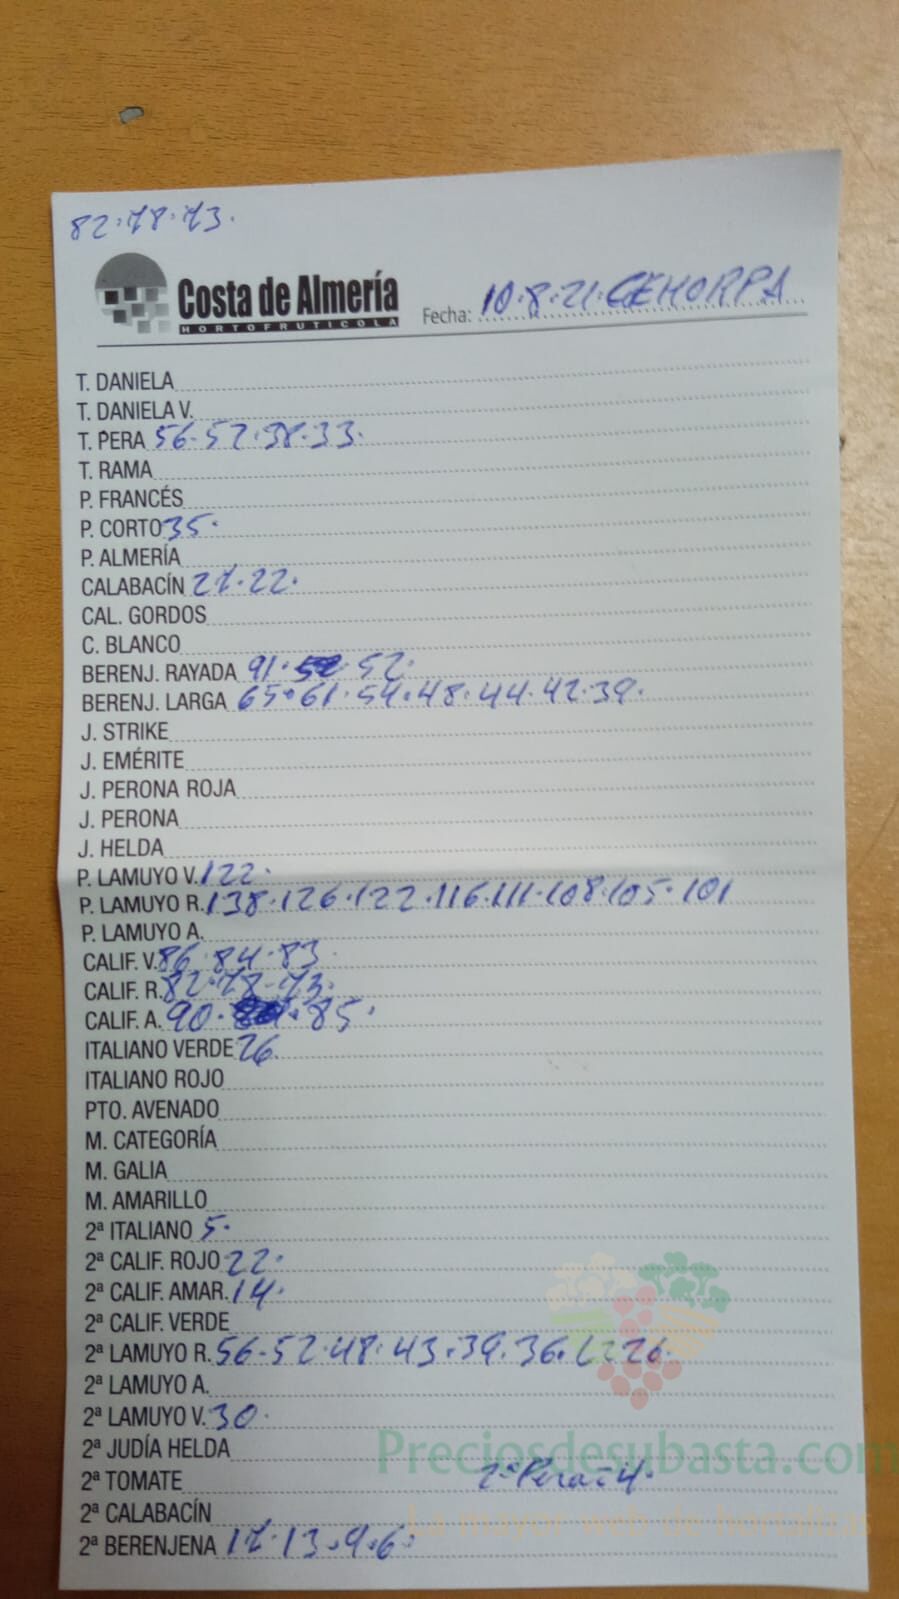 82.78.73.
Costa de Almería
HORTOFRUTICOLA
Fecha: 10.8.21. CEHORPA
T. DANIELA
T. DANIELA V.
T. PERA 56.52.38.33.
T. RAMA
P. FRANCÉS
P. CORTO 35.
P. ALMERÍA
CALABACÍN 27.22.
CAL. GORDOS
C. BLANCO
BERENJ. RAYADA 91. 52.
BERENJ. LARGA 65.61.54.48.44.42.39.
J. STRIKE
J. EMÉRITE
J. PERONA ROJA
J. PERONA
J. HELDA
P. LAMUYO V. 122.
P. LAMUYO R. 138.126.122.116.111.108.105.101
P. LAMUYO A.
CALIF. V. 86.84.83
CALIF. R. 82.78.73.
CALIF. A. 90. 85.
ITALIANO VERDE 26
ITALIANO ROJO
PTO. AVENADO
M. CATEGORÍA
M. GALIA
M. AMARILLO
2ª ITALIANO 5.
2ª CALIF. ROJO 22.
2ª CALIF. AMAR. 14.
2ª CALIF. VERDE
2ª LAMUYO R. 56.52.48.43.39.36. 26.
2ª LAMUYO A.
2ª LAMUYO V. 30.
2ª JUDÍA HELDA
Preciosdesubasta.com
2ª TOMATE 2ª Pera = 4.
2ª CALABACÍN
La mayor web de hortalizas
2ª BERENJENA 17.13.9.6.